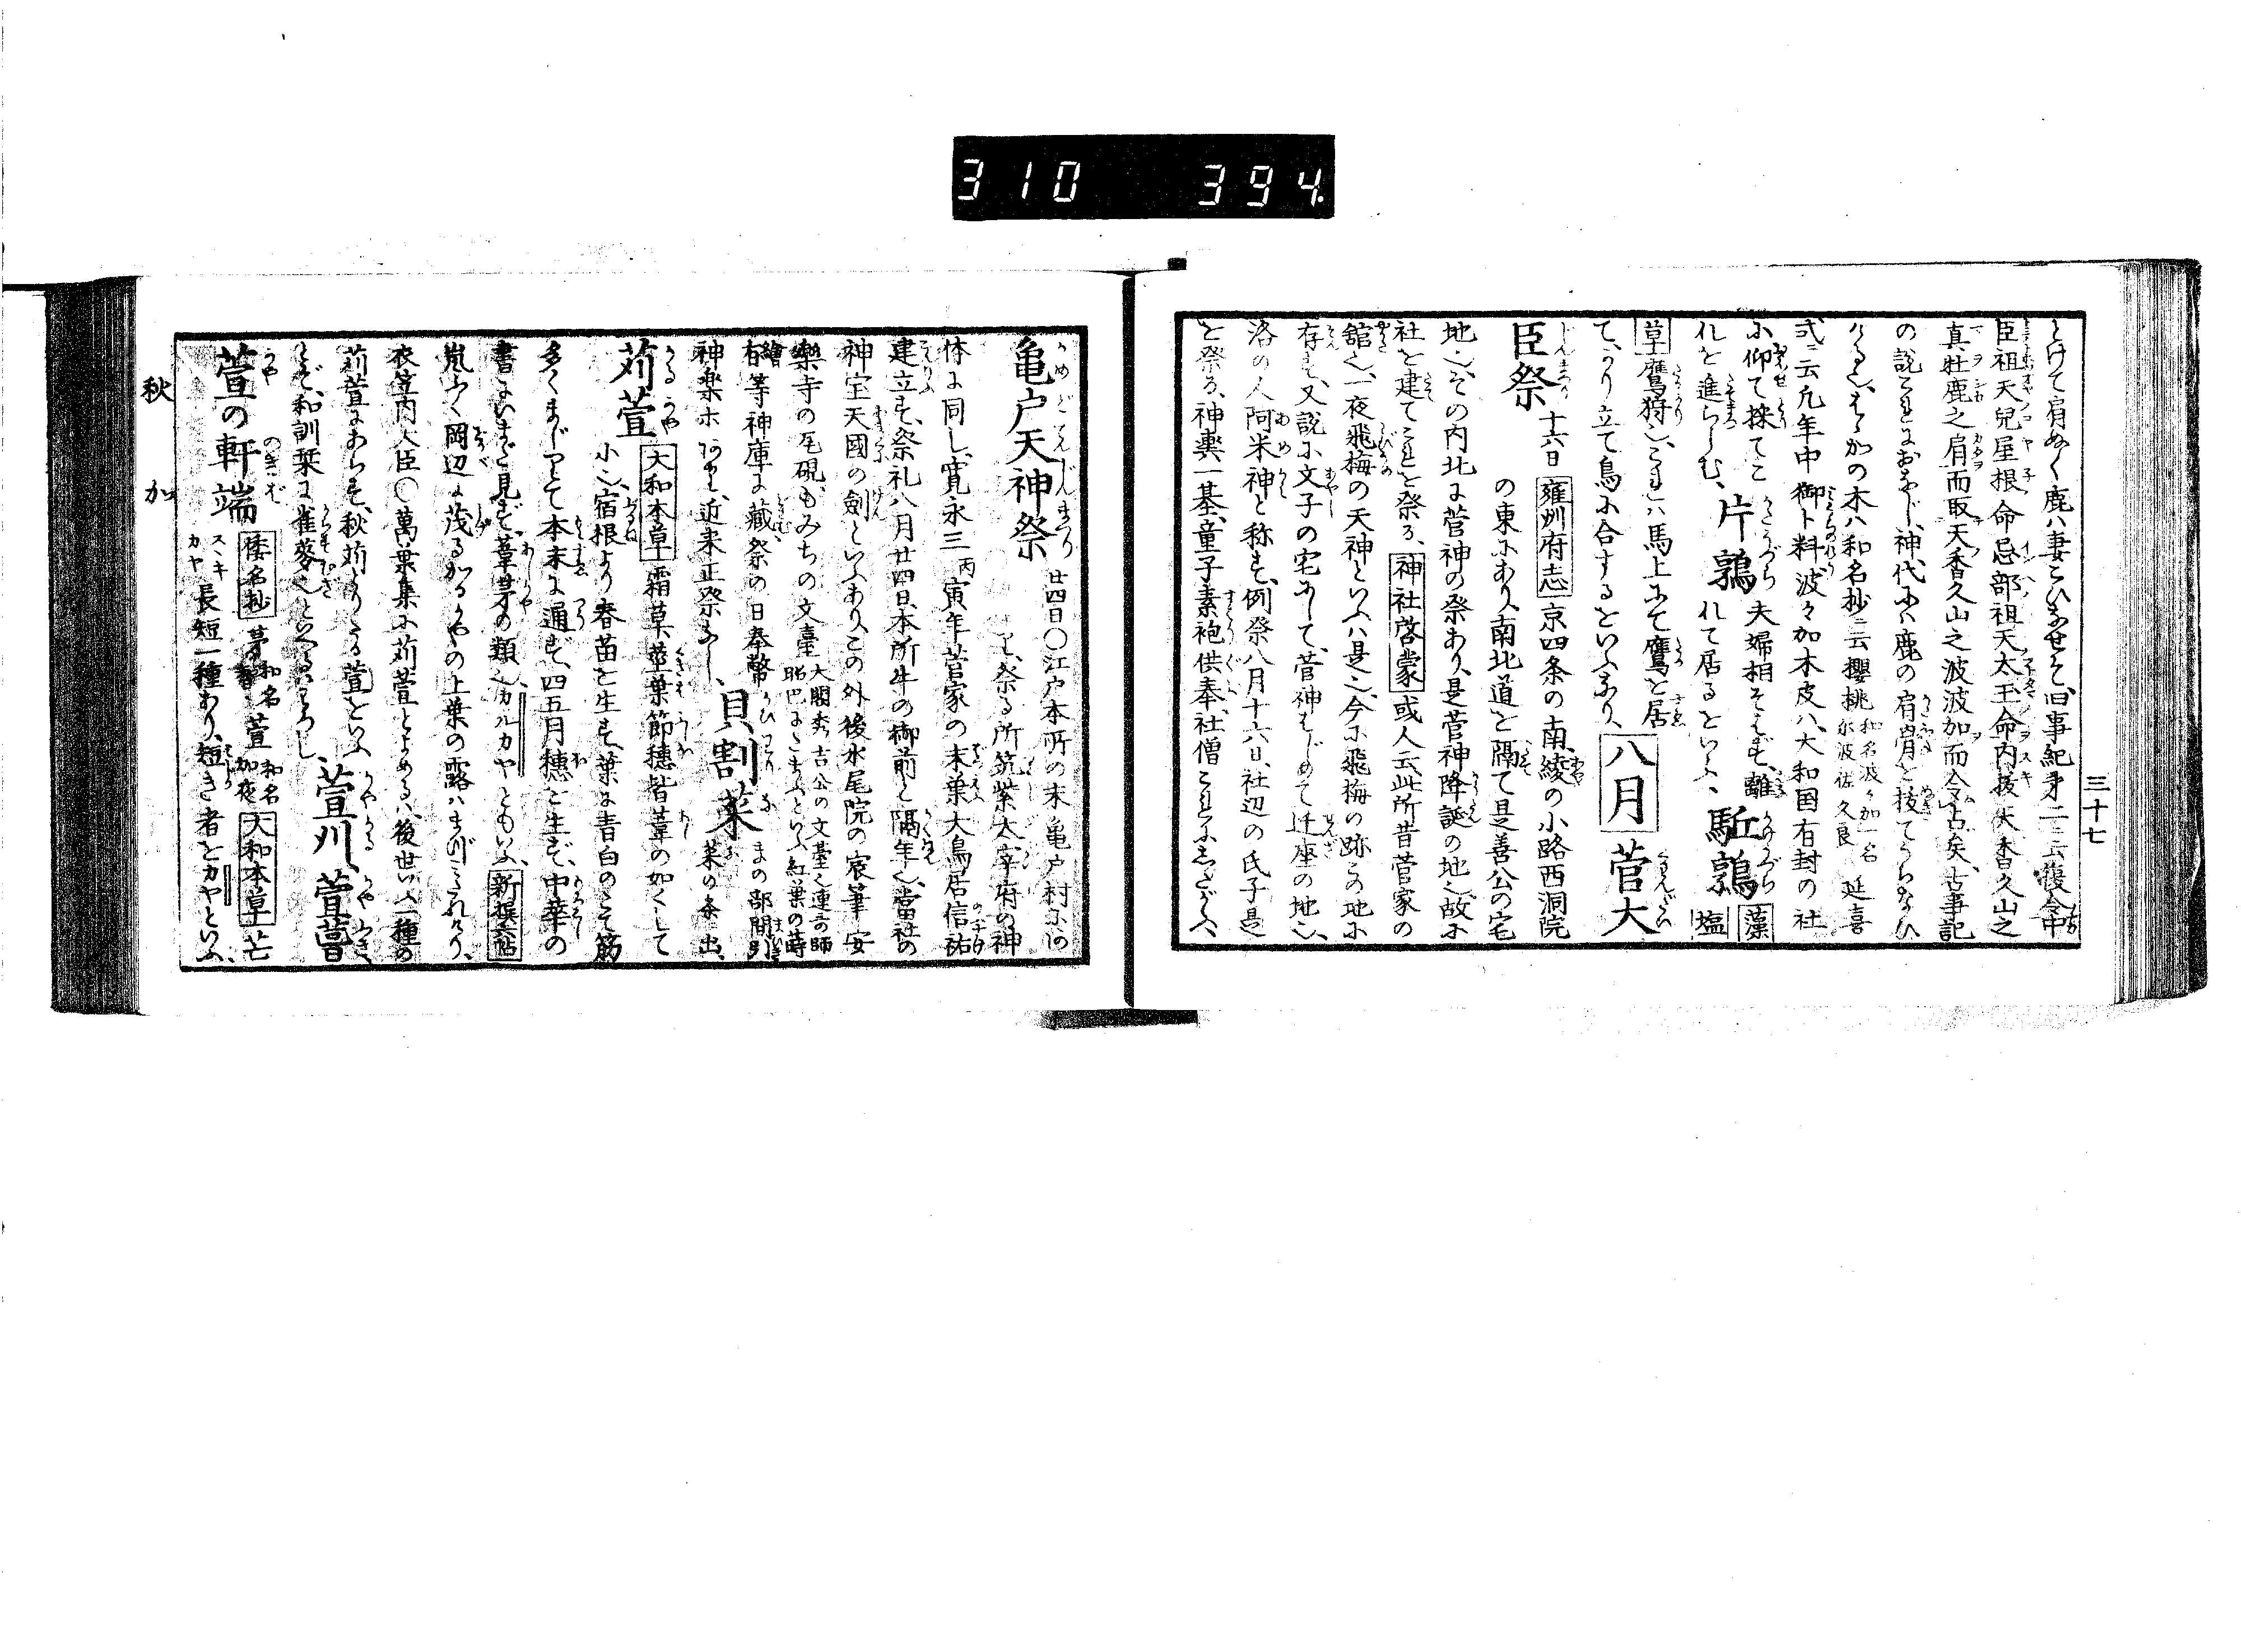 310 394
三十七
とけて肩ぬく鹿ハ妻こひなせそ、旧事紀第二ニ云復令中
臣祖天兒屋根命忌部祖天太玉命内抜天香久山之
真牡鹿之肩而取天香久山之波波加而令占矣、古事記
の説これにおなじ、神代に鹿の肩骨を抜てうらなひ
ける也、その木ハ和名抄ニ云櫻桃 和名波々加一名 尓波佐久良 延喜
式ニ云凡年中御卜料波々加木皮ハ、大和国有封の社
に仰て採てこれを進らしむ、
片鶉 夫婦相そはず、離れて居るをいふ、
駈鶉 藻塩草 鷹狩也、これハ馬上にて鷹を居
て、かり立て鳥に合するをいふなり、
八月
菅大臣祭 十六日 雍州府志 京四条の南、綾の小路西洞院
の東にあり、南北道を隔て是善公の宅
地也、その内北に菅神の祭あり、是菅神降誕の地也、故に
社を建てこれを祭る、神社啓蒙 或人云此所昔菅家の
舘也、一夜飛梅の天神といふハ是也、今に飛梅の跡この地に
存す、又説に文子の宅にして、菅神はじめて迁座の地也、
洛の人阿米神と称す、例祭八月十六日、社辺の氏子是
を祭る、神輿一基、童子素袍供奉、社僧これにしたがふ、
亀戸天神祭 廿四日〇江戸本所の末亀戸村にあ
り、祭る所筑紫太宰府の神
体に同し、寛永三丙寅年菅家の末葉大鳥居信祐
建立す、祭礼八月廿四日、本所牛の御前と隔年也、當社の
神宝天國の劍といふあり、この外後水尾院の宸筆、安
樂寺の瓦硯、もみちの文臺 大閤秀吉公の文臺也連哥の師 紹巴にたまふといふ紅葉の蒔繪
右等神庫に藏、祭の日奉幣
神楽ホあり、近来正祭なし、
貝割菜 まの部間引菜の条出、
苅萱 大和本草 霜草莖葉節穗皆葦の如くして
小也、宿根より春苗を生す、葉に青白のたて筋
多くまじりて本末に通す、四五月穗を生ず、中華の
書にいまだ見ず、葦茅の類也、カルカヤともいふ、新撰六帖
嵐ふく岡辺に茂るかるかやの上葉の露ハまづこほれけり、
衣笠内大臣〇萬葉集に苅萱とよめるハ、後世いふ一種の
苅萱にあらす、秋苅とりたる萱をいふ、
萱刈、萱葺
萱の軒端 倭名抄 大和本草 芒
長短二種あり、短き者をカヤといふ、
秋 加